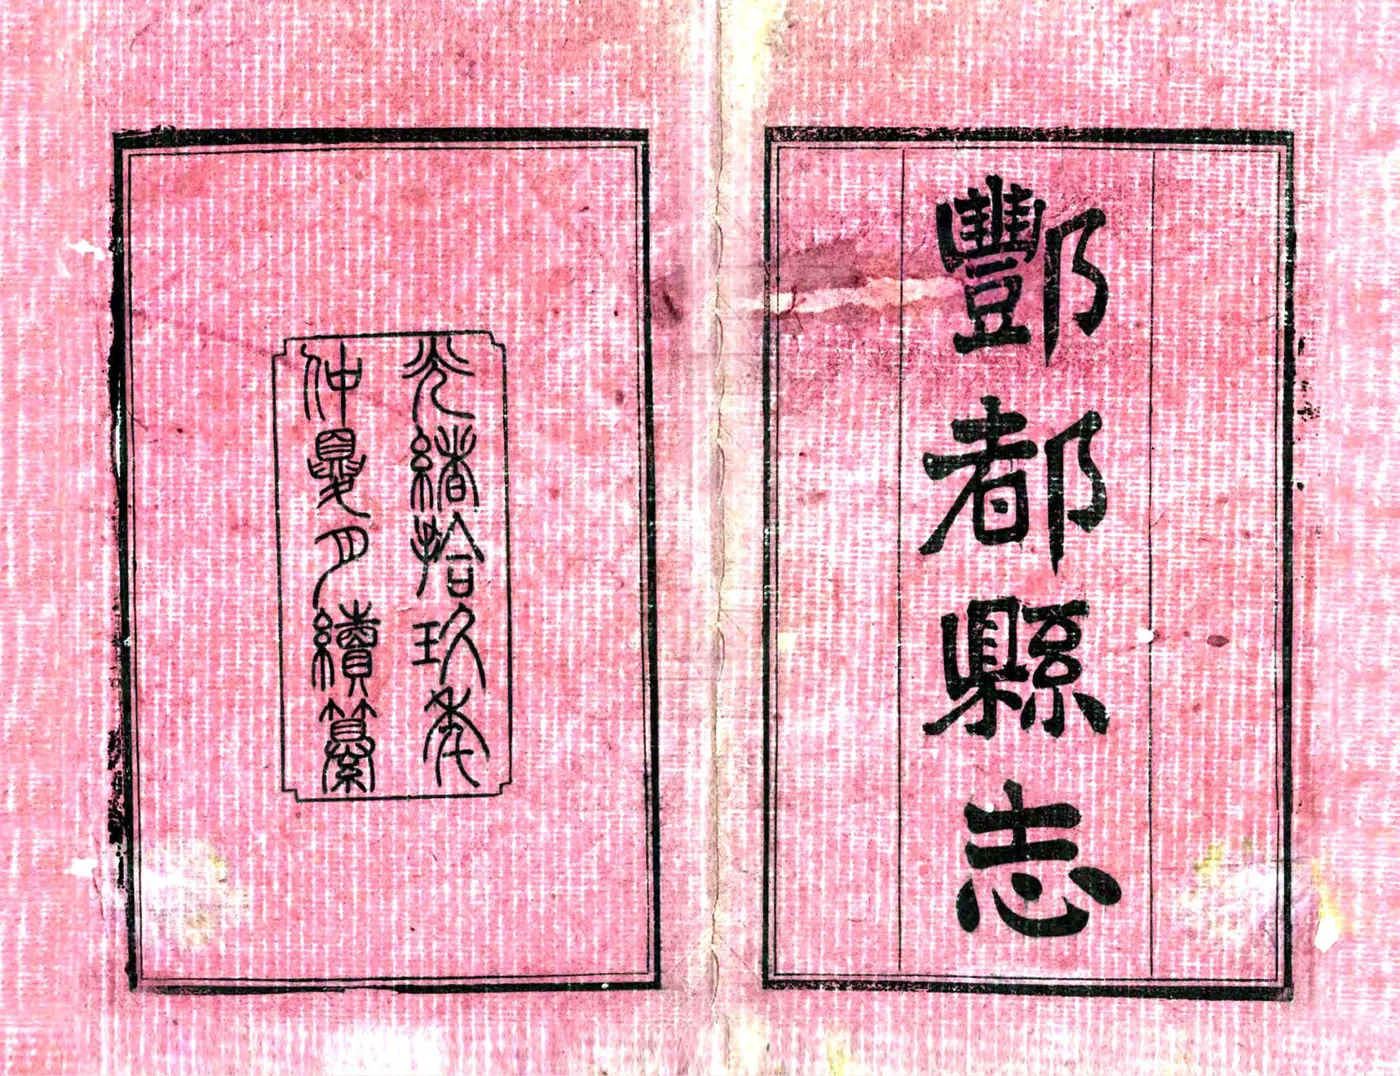 酆都縣志
光緒拾玖年
仲夏月續纂